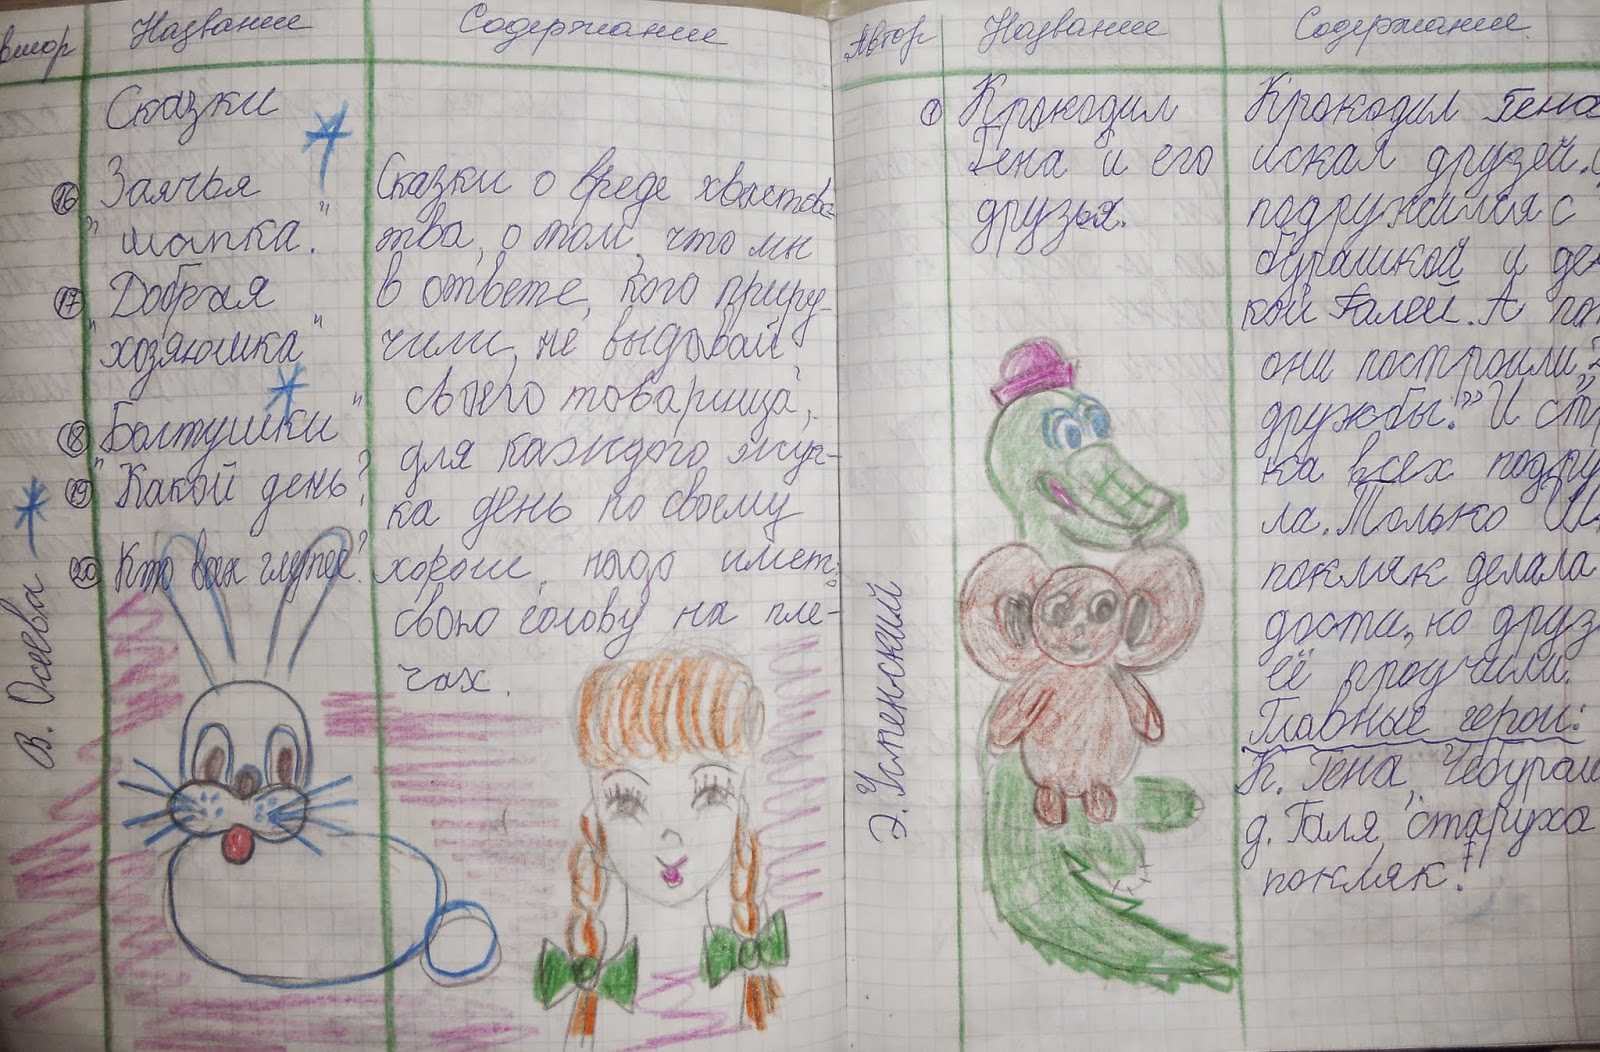 Автор
Название
Содержание
Сказки
16 Заячья
"шапка."
17 Добрая
"хозяюшка"
18 Болтушки"
19 "Какой день?
20 Кто всех глупее?
В. Осеева
Сказки о вреде хвастовс-
тва, о том, что мы
в ответе, кого приру-
чили, не выдавай
своего товарища,
для каждого жуч-
ка день по своему
хорош, надо иметь
свою голову на пле-
чах.
Автор
Название
Содержание.
1 Крокодил
Гена и его
друзья.
Э. Успенский
Крокодил Гена
искал друзей.
подружился с
бурашкой и дев
кой Галей. А пот
они построили
дружбы!" И стр
ка всех подру
ла. Только Ша
покляк делала
дости, но друз
её проучили.
Главные герои:
К. Гена, Чебураш
д. Галя, старуха
покляк!